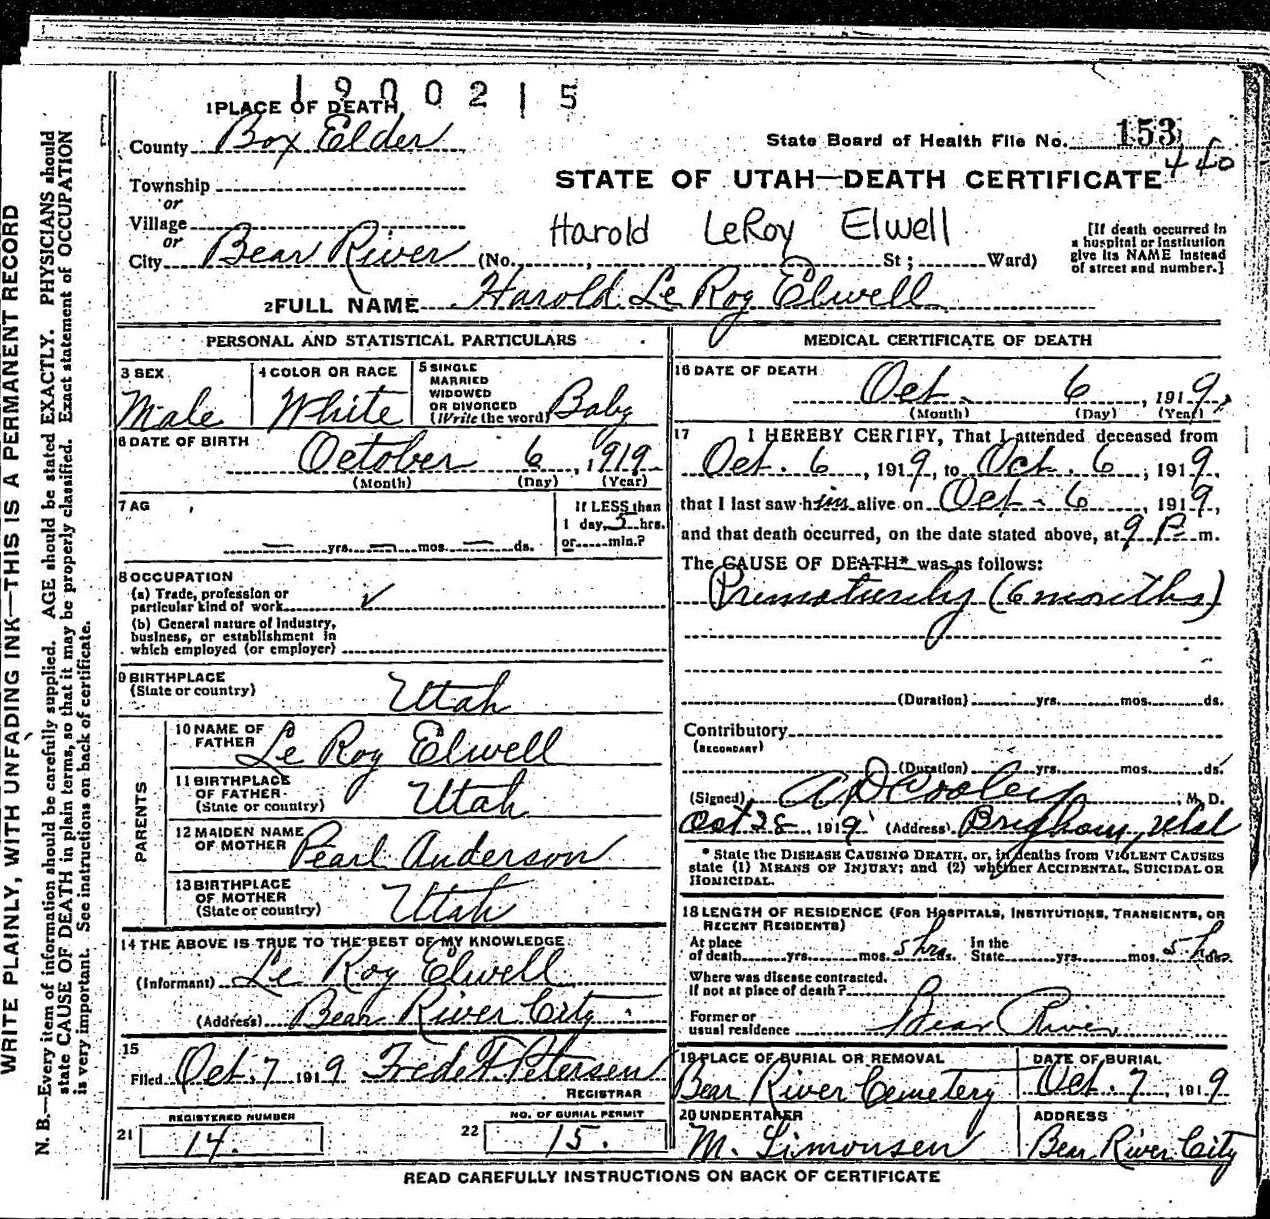 1900215
1 PLACE OF DEATH
County Box Elder
State Board of Health File No. 153
440
STATE OF UTAH—DEATH CERTIFICATE
Township
or
Village
or
City Bear River (No. , St ; Ward)
Harold LeRoy Elwell
[If death occurred in
a hospital or institution
give its NAME instead
of street and number.]
2 FULL NAME Harold Le Roy Elwell
PERSONAL AND STATISTICAL PARTICULARS
3 SEX
Male
4 COLOR OR RACE
White
5 SINGLE
MARRIED
WIDOWED
OR DIVORCED
(Write the word) Baby
6 DATE OF BIRTH
October 6, 1919
(Month) (Day) (Year)
7 AG
— yrs. — mos. — ds.
If LESS than
1 day, 5 hrs.
or min.?
8 OCCUPATION
(a) Trade, profession or
particular kind of work ✓
(b) General nature of Industry,
business, or establishment in
which employed (or employer)
9 BIRTHPLACE
(State or country) Utah
PARENTS
10 NAME OF
FATHER Le Roy Elwell
11 BIRTHPLACE
OF FATHER
(State or country) Utah
12 MAIDEN NAME
OF MOTHER Pearl Anderson
13 BIRTHPLACE
OF MOTHER
(State or country) Utah
14 THE ABOVE IS TRUE TO THE BEST OF MY KNOWLEDGE
(Informant) Le Roy Elwell
(Address) Bear River City
15
Filed Oct. 7 1919 Frede F. Petersen
REGISTRAR
REGISTERED NUMBER
21 14.
NO. OF BURIAL PERMIT
22 15.
MEDICAL CERTIFICATE OF DEATH
16 DATE OF DEATH
Oct. 6, 1919,
(Month) (Day) (Year)
17 I HEREBY CERTIFY, That I attended deceased from
Oct. 6, 1919, to Oct. 6, 1919,
that I last saw him alive on Oct. 6, 1919,
and that death occurred, on the date stated above, at 9 P. m.
The CAUSE OF DEATH* was as follows:
Prematurity (6 months)
(Duration) yrs. mos. ds.
Contributory
(SECONDARY)
(Duration) yrs. mos. ds.
(Signed) A D Cooley, M. D.
Oct 28, 1919 (Address) Brigham, Utah
* State the DISEASE CAUSING DEATH, or, in deaths from VIOLENT CAUSES
state (1) MEANS OF INJURY; and (2) whether ACCIDENTAL, SUICIDAL OR
HOMICIDAL.
18 LENGTH OF RESIDENCE (FOR HOSPITALS, INSTITUTIONS, TRANSIENTS, OR
RECENT RESIDENTS)
At place
of death yrs. mos. 5 hrs. In the
State yrs. mos. 5 hrs.
Where was disease contracted.
If not at place of death?
Former or
usual residence Bear River
19 PLACE OF BURIAL OR REMOVAL
Bear River Cemetery
DATE OF BURIAL
Oct. 7, 1919
20 UNDERTAKER
M. Simonsen
ADDRESS
Bear River City
READ CAREFULLY INSTRUCTIONS ON BACK OF CERTIFICATE
WRITE PLAINLY, WITH UNFADING INK—THIS IS A PERMANENT RECORD
N. B.—Every item of information should be carefully supplied. AGE should be stated EXACTLY. PHYSICIANS should
state CAUSE OF DEATH in plain terms, so that it may be properly classified. Exact statement of OCCUPATION
is very important. See instructions on back of certificate.